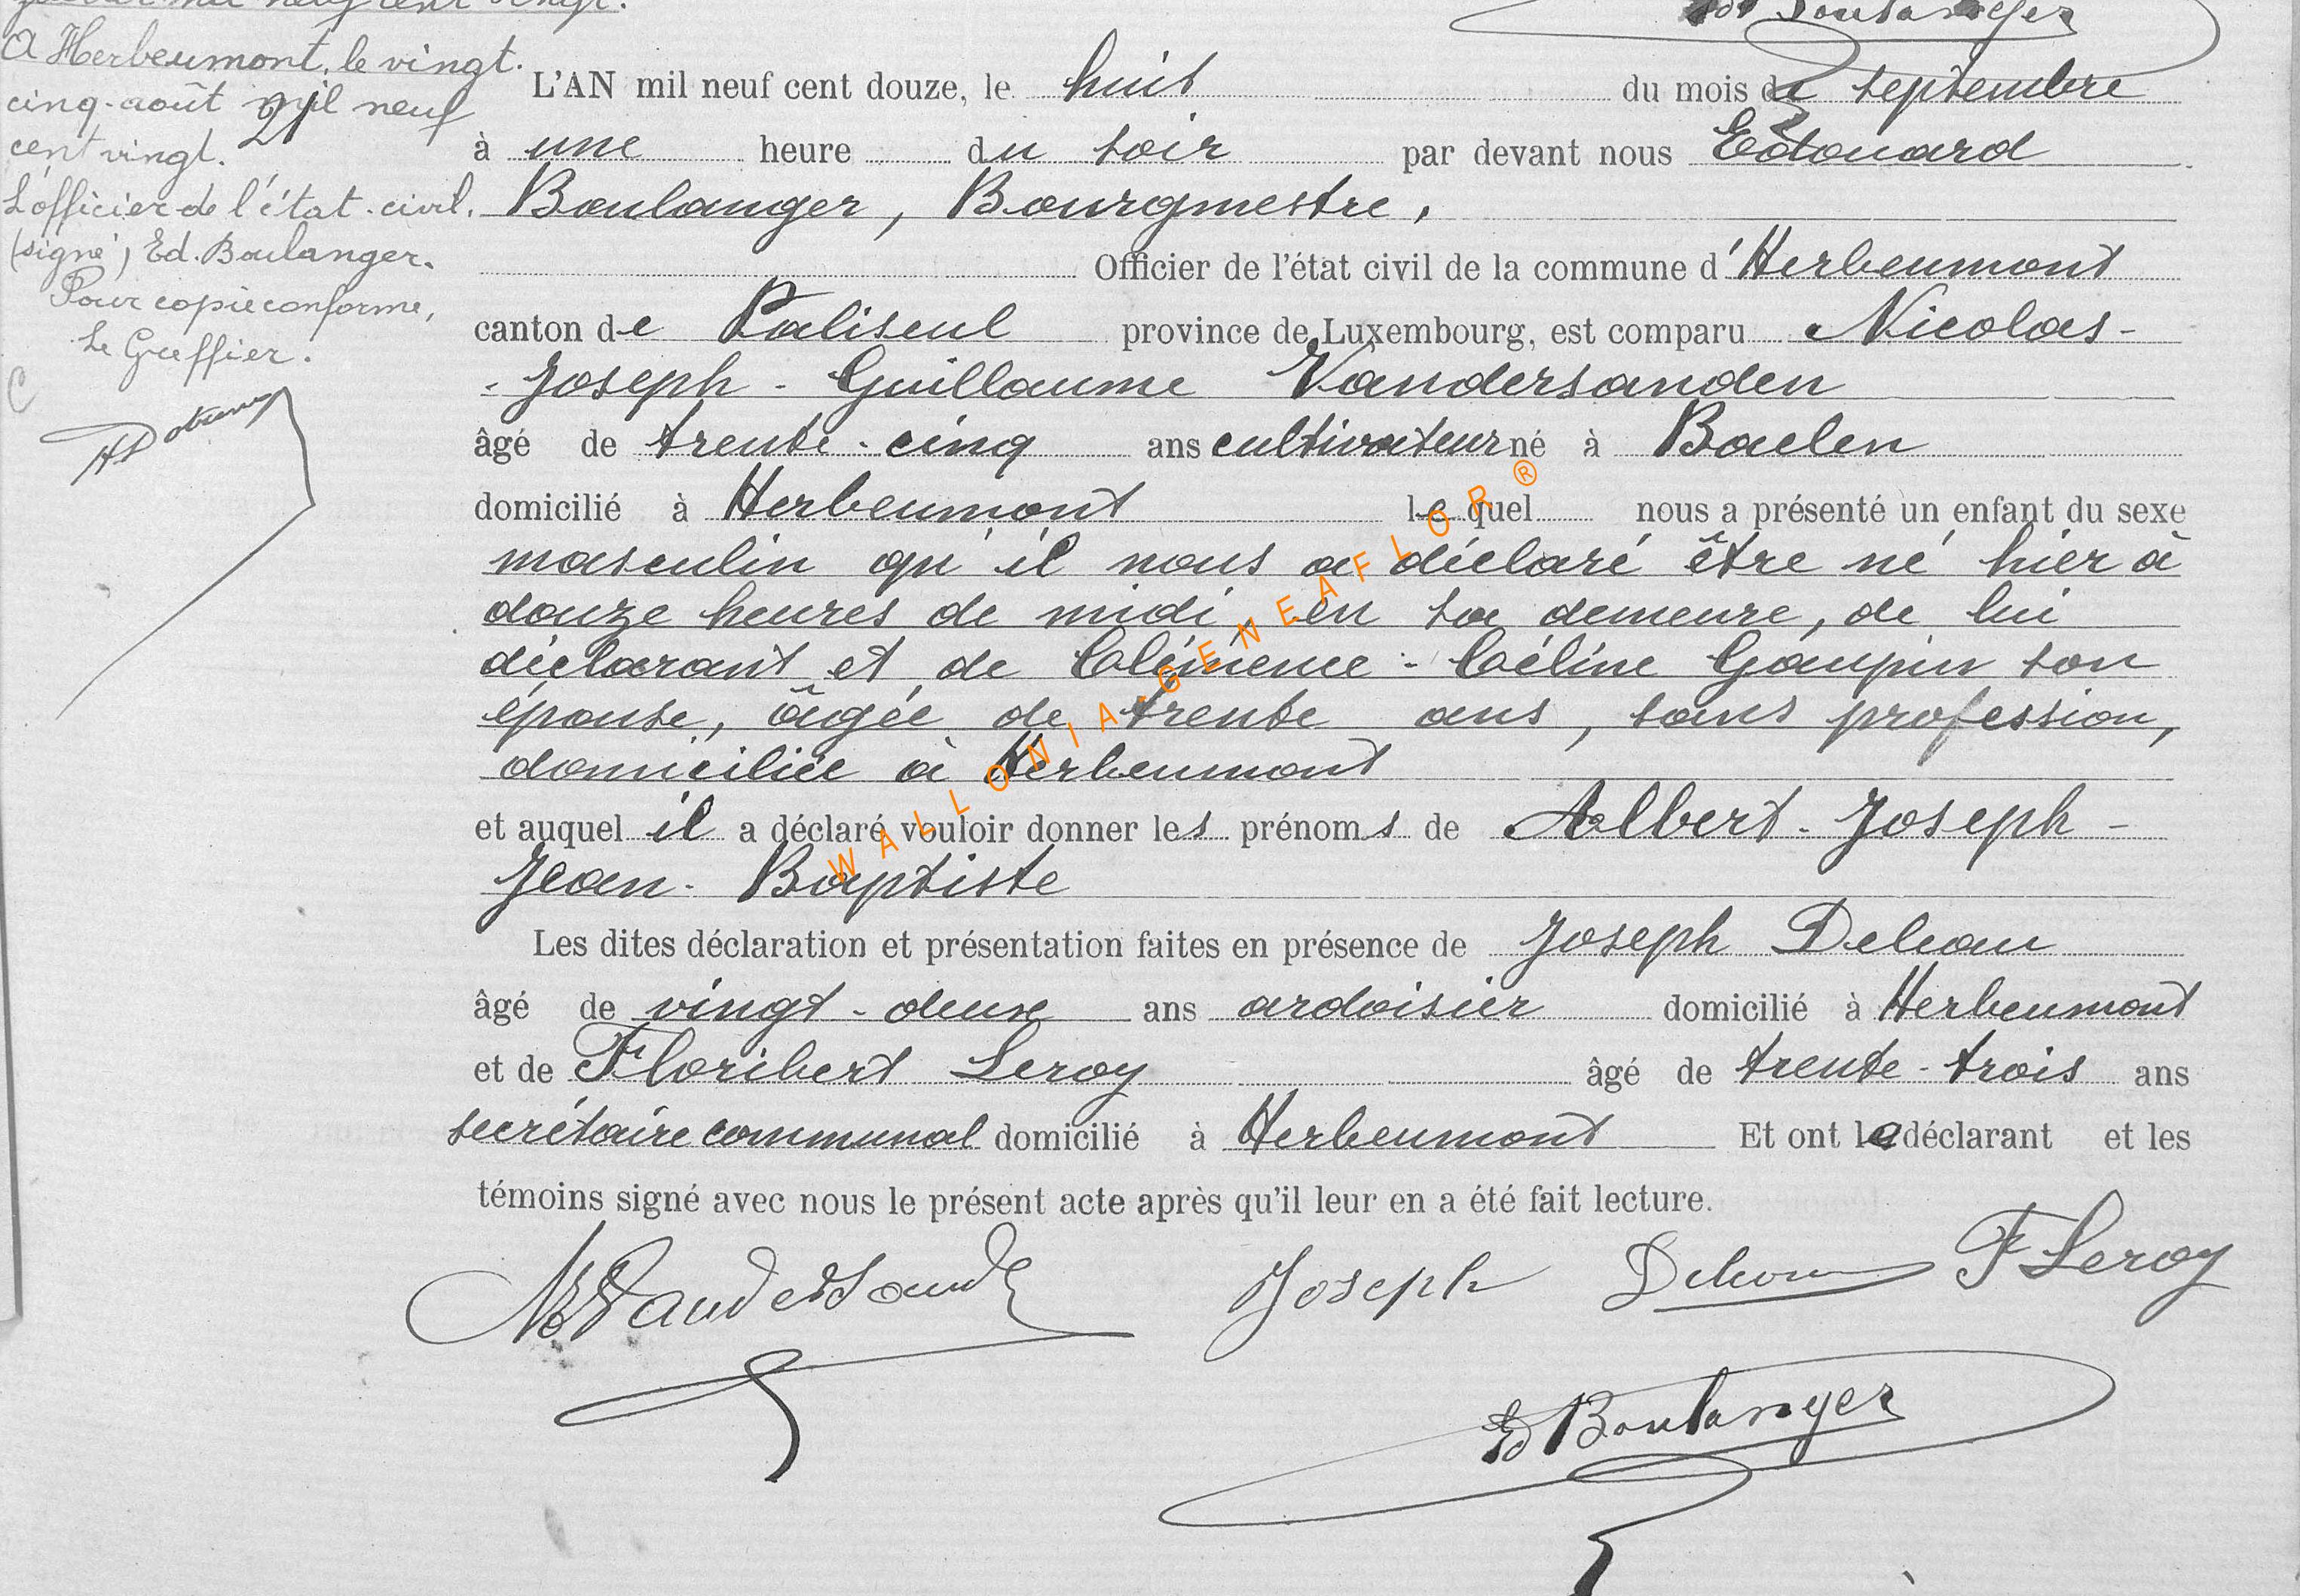 A Herbeumont, le vingt-
cinq août mil neuf
cent vingt.
L'officier de l'état-civil.
(signé) Ed. Boulanger.
Pour copie conforme,
Le Greffier.
Boulanger
L'AN mil neuf cent douze, le huit du mois de septembre
à une heure du soir par devant nous Edouard
Boulanger, Bourgmestre,
Officier de l'état civil de la commune d'Herbeumont
canton de Paliseul province de Luxembourg, est comparu Nicolas-
-Joseph-Guillaume Vandersanden
âgé de trente-cinq ans cultivateur né à Baelen
domicilié à Herbeumont lequel nous a présenté un enfant du sexe
masculin qu'il nous a déclaré être né hier à
douze heures de midi, en sa demeure, de lui
déclarant et de Clémence-Céline Goupin son
épouse, âgée de trente ans, sans profession,
domiciliée à Herbeumont
et auquel il a déclaré vouloir donner les prénoms de Albert-Joseph-
Jean-Baptiste
Les dites déclaration et présentation faites en présence de Joseph Dehan
âgé de vingt-deux ans ardoisier domicilié à Herbeumont
et de Floribert Leroy âgé de trente-trois ans
secrétaire communal domicilié à Herbeumont Et ont le déclarant et les
témoins signé avec nous le présent acte après qu'il leur en a été fait lecture.
Joseph Dehan F Leroy
Ed Boulanger
WALLONIA-GENEAFLOR ®